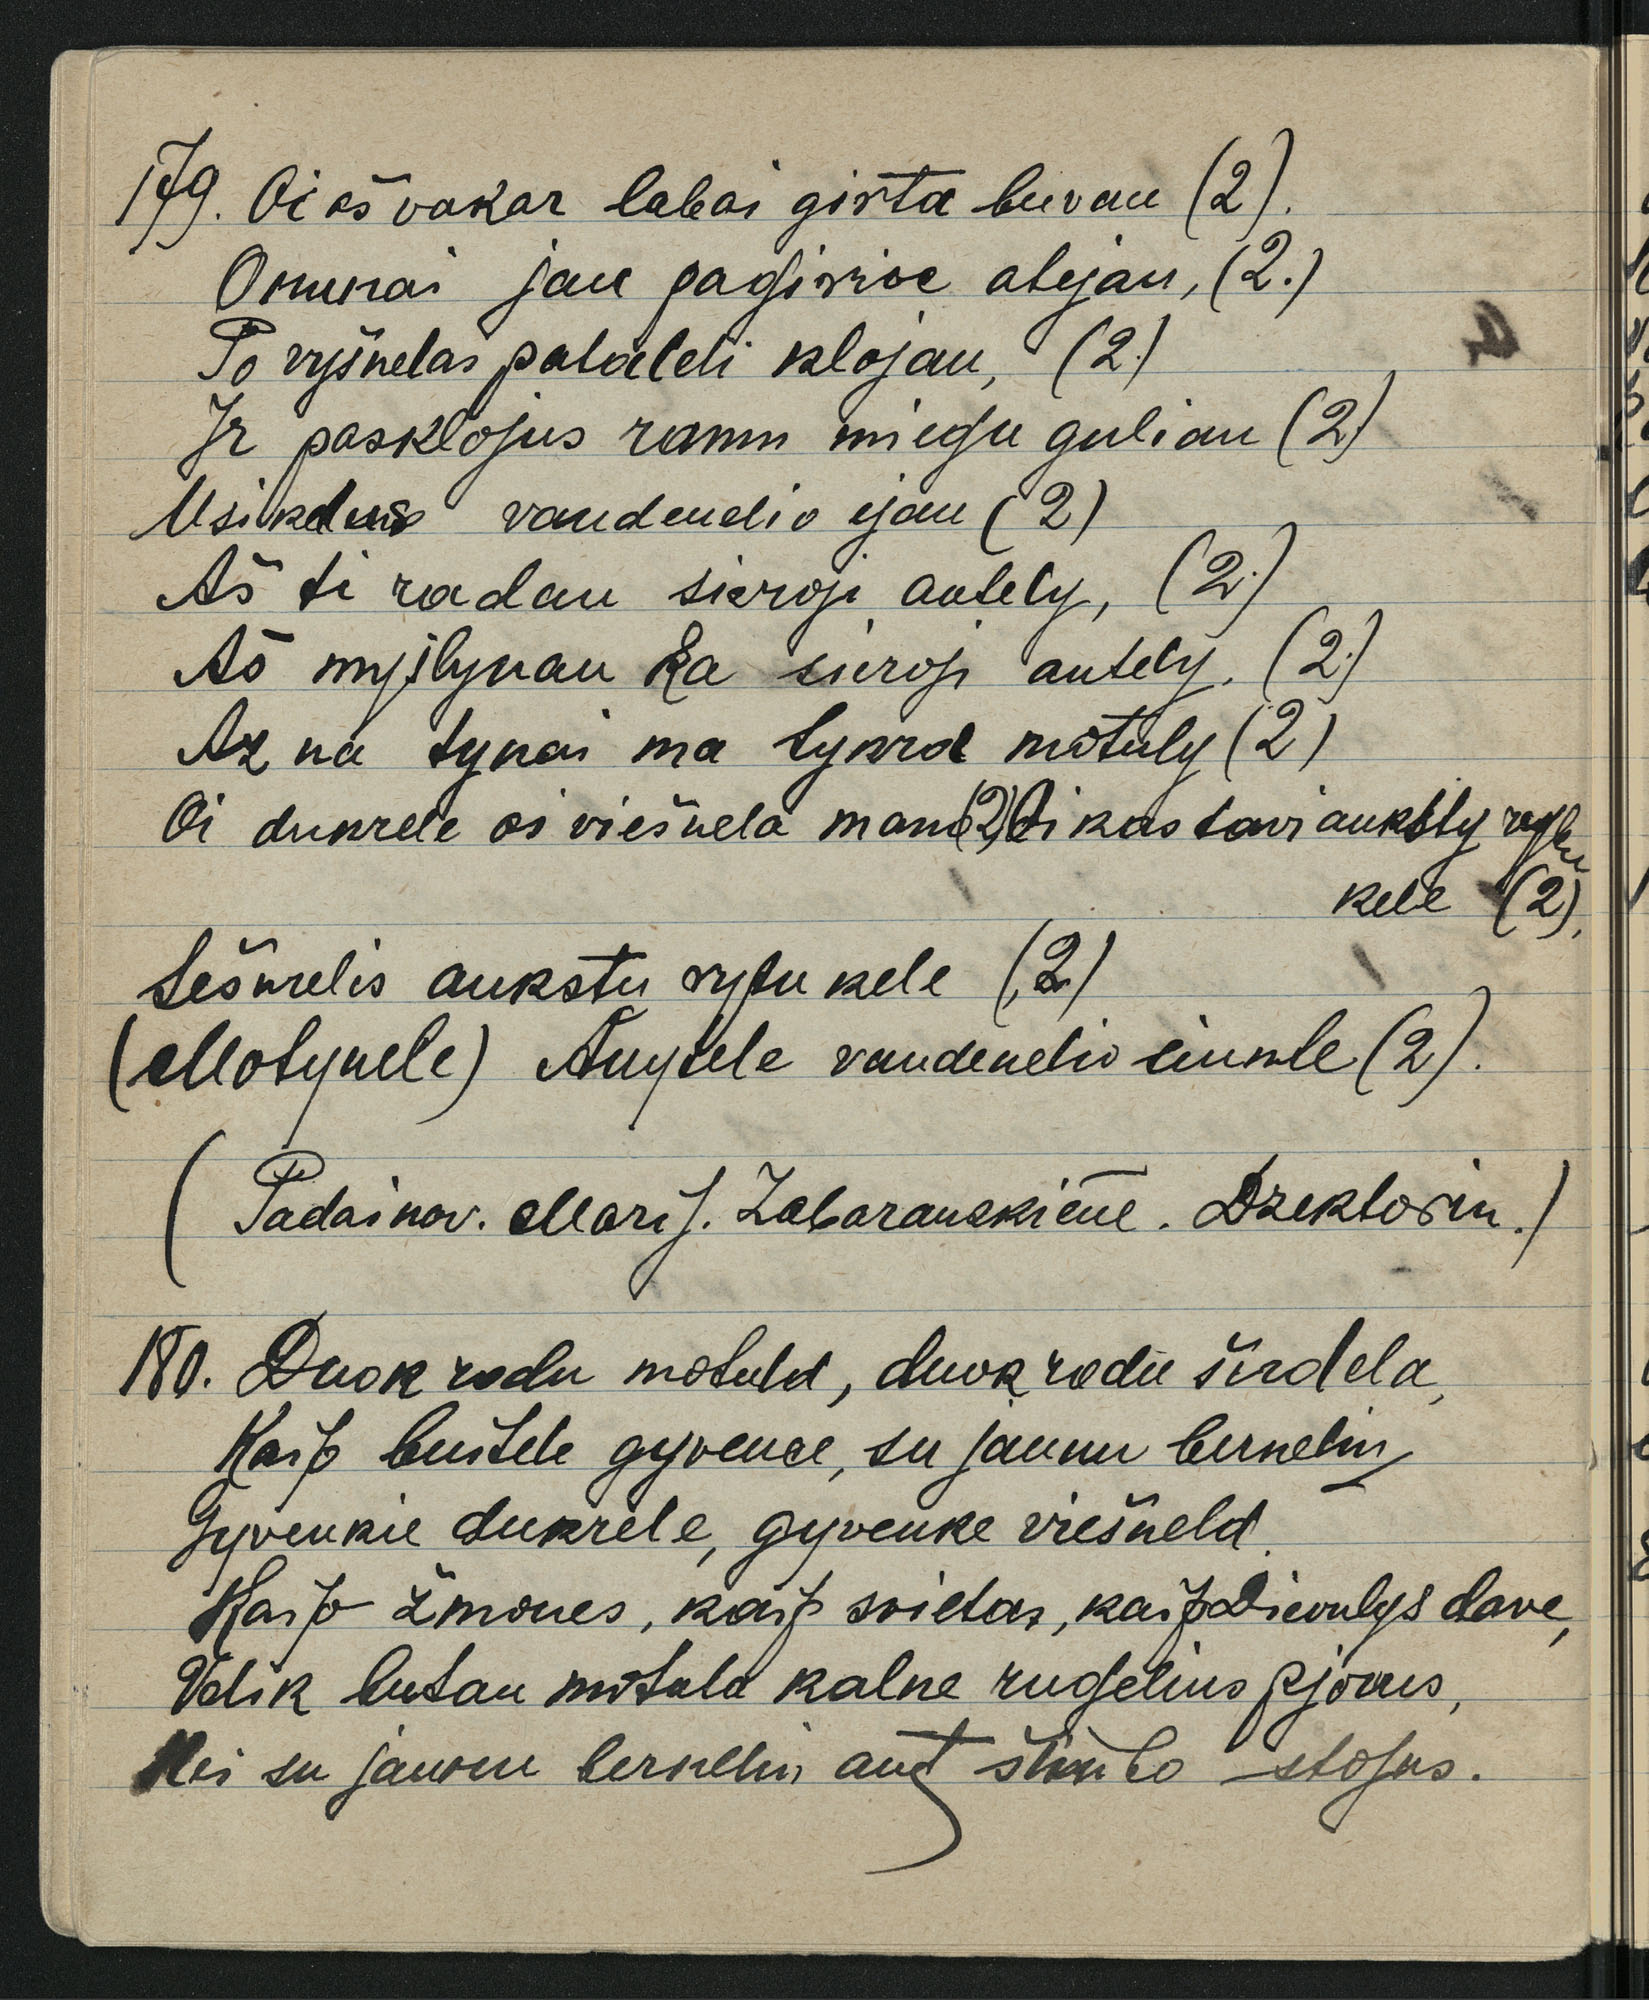 179. Oi aš vakar labai girta buvau (2).
Onunai jau pagirioe atejau, (2.)
Po vyšnelas patalėli klojau, (2.)
Ir pasklojus ramu miegu guliau (2)
Usikelus vandenelio ejau (2)
Aš ti radau sieroji antely, (2.)
Aš myslynau ka sieroji antely. (2.)
Az na tynai ma tykra motuly (2)
Oi dukrele oi viešnela mano (2) Oi kas tavi anksty rytu
kele (2),
Sešurelis ankstu rytu kele (2)
(Motynele) Anytele vandenelio siunte (2).
(Padainov. Marij. Zabarauskienė. Dzektorių.)
180. Duok rodu motula, duok rodu širdela,
Kaip buitele gyvence, su jaunu berneliu,
Gyvenkie dukrele, gyvenke viešnela.
Kaip žmones, kaip svietas, kaip Dievulys dave,
Velik butau motula kalne rugelius pjovus,
Nei su jaunu berneliu ant šliubo stojus.